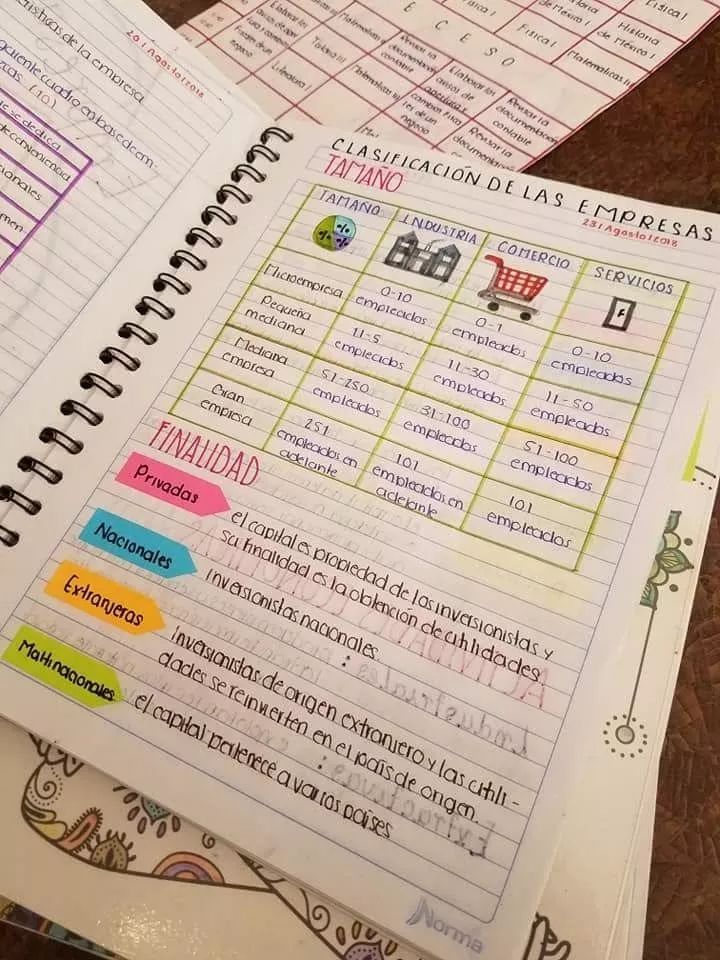 de la empresa
23/Agosto/2018
cuadro en base de em-
(10)
se dedica
Física I
de México I
Historia
de México I
Física I
Matemáticas III
E C E S O
Literatura I
Elaborar los
avisos de
apertura
Revisar la
documentación
contable
Revisar la
CLASIFICACIÓN DE LAS EMPRESAS
23/Agosto/2018
TAMAÑO
TAMAÑO INDUSTRIA COMERCIO SERVICIOS
Microempresa 0-10 empleados 0-1 empleados 0-10 empleados
Pequeña mediana 11-5 empleados 11-30 empleados 11-50 empleados
Mediana empresa 51-250 empleados 31-100 empleados 51-100 empleados
Gran empresa 251 empleados en adelante 101 empleados en adelante 101 empleados
FINALIDAD
Privadas
el capital es propiedad de los inversionistas y
su finalidad es la obtención de utilidades
Nacionales
Inversionistas nacionales.
Extranjeras
Inversionistas de origen extranjero y las utili-
dades se reinvierten en el país de origen.
Multinacionales
el capital pertenece a varios países
Norma